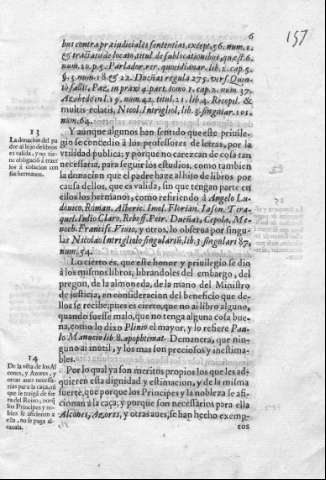 6
157
bus contra præiudiciales sententias, except. 56. num. 1.
& tractatu de locato, titul. de publicationibus, quæst. 6.
num. 20. p. 5. Parlador. rer. quotidianar. lib. 2. cap. 5.
§. 3. num. 18. & 22. Dueñas regula 275. vers. Quin-
to fallit, Paz, in praxi 4. part. tomo 1. cap. 2. num. 37.
Azebedo in l. 19. num. 42. titul. 21. lib. 4. Recopil. &
multis relatis, Nicol. Intrigliol, lib. singular. 101.
num. 64.
13
La donacion del pa
dre al hijo de libros
es valida, y no tie-
ne obligació a traer
los à colacion con
sus hermanos.
Y aunque algunos han sentido que este priuile-
gio se concedio à los professores de letras, por la
vtilidad publica; y porque no carezcan de cosa tan
necessaria, para seguir los estudios, como tambien
la donacion que el padre haze al hijo de libros por
causa dellos, que es valida, sin que tengan parte en
ellos los hermanos, como refiriendo à Angelo Lu-
douico, Roman, Alberic. Imol. Florian, Iason, Tira-
quel, Iulio Claro, Rebuf. Petr. Dueñas, Cepola, Me-
noch. Francisc. Viuio, y otros, lo obserua por singu-
lar Nicolas Intrigliolo singularū, lib. 3. singulari 87,
num. 54.
Lo cierto es, que este honor y priuilegio se dio
à los mismos libros, librandoles del embargo, del
pregon, de la almoneda, de la mano del Ministro
de justicia, en consideracion del beneficio que de-
llos se recibe, pues es cierto, que no ai libro alguno,
quando fuesse malo, que no tenga alguna cosa bue-
na, como lo dixo Plinio el mayor, y lo refiere Pau-
lo Manucio lib. 8. apophtemat. Demanera, que nin-
guno ai inutil, y los mas son preciosos y inestima-
bles.
14
De la vista de los Al
cones, y Azores, y
otras aues necessa-
rias para la caça, q̄
que se traigā de fue
ra del Reino, co q̄
los Principes y no-
bles se aficionen a
ella, no se paga al-
cauala.
Por lo qual ya son meritos propios los que les ad-
quieren esta dignidad y estimacion, y de la misma
suerte, que porque los Principes y la nobleza se afi-
cionan à la caça; y porque son necessarios para ella
Alcones, Azores, y otras aues, se han hecho exemp-
tos